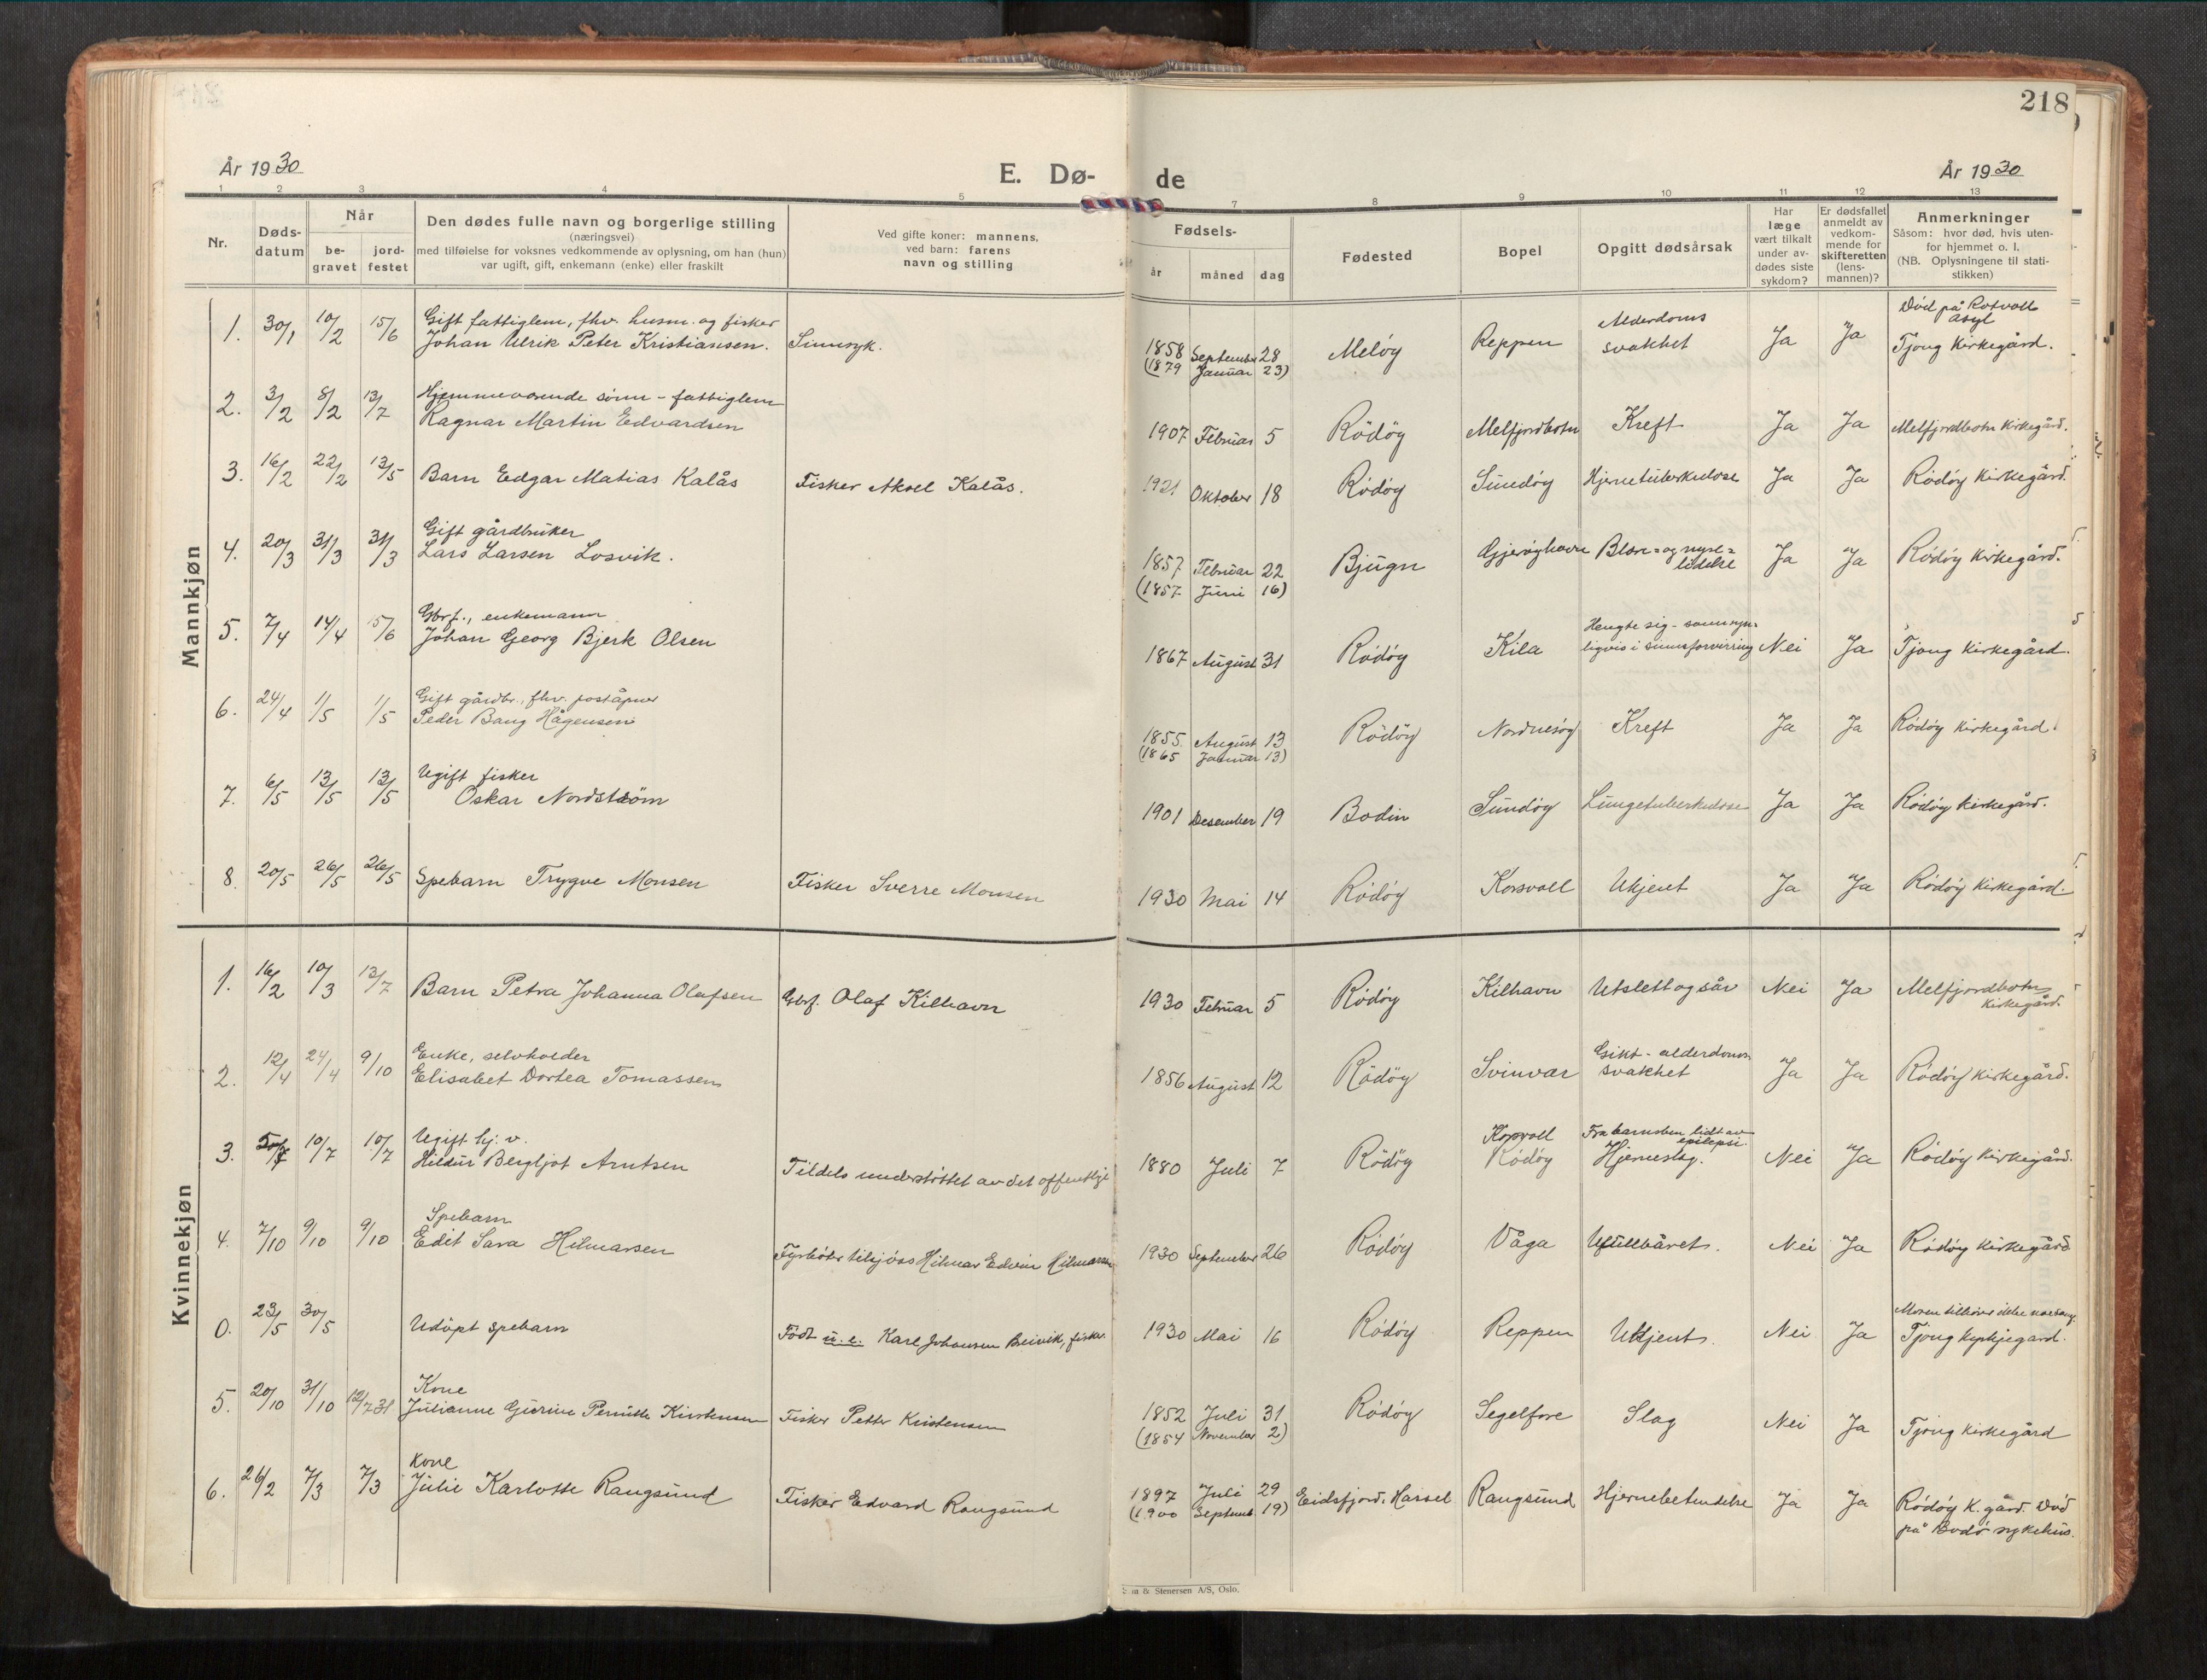 218
År 1930
E. Dø-
de
År 1930
1 2 3 4 5 7 8 9 10 11 12 13
Nr.
Døds-
datum
Når
be-
gravet
jord-
festet
Den dødes fulle navn og borgerlige stilling
(næringsvei)
med tilføielse for voksnes vedkommende av oplysning, om han (hun)
var ugift, gift, enkemann (enke) eller fraskilt
Ved gifte koner: mannens,
ved barn: farens
navn og stilling
Fødsels-
år måned dag
Fødested
Bopel
Opgitt dødsårsak
Har
læge
vært tilkalt
under av-
dødes siste
sykdom?
Er dødsfallet
anmeldt av
vedkom-
mende for
skifteretten
(lens-
mannen)?
Anmerkninger
Såsom: hvor død, hvis uten-
for hjemmet o. l.
(NB. Oplysningene til stati-
stikken)
Mannkjøn
1. 30/1 10/2 15/6 Gift fattiglem, fhv. husm. og fisker
Johan Ulrik Peter Kristiansen. Sinnsyk.
1858 September 28 Meløy Reppen Alderdoms
svakhet Ja Ja Død på Rotvoll
asyl
(1879 Januar 23) Tjong Kirkegård.
2. 3/2 8/2 13/7 Hjemmeværende sønn - fattiglem
Ragnar Martin Edvardsen
1907 Februar 5 Rödöy Melfjordbotn Kreft Ja Ja Melfjordbotn Kirkegård.
3. 16/2 22/2 13/5 Barn Edgar Matias Kalås Fisker Aksel Kalås.
1921 Oktober 18 Rödöy Sundöy Hjernetuberkulose Ja Ja Rödöy Kirkegård.
4. 20/3 31/3 31/3 Gift gårdbruker
Lars Larsen Losvik.
1857 Februar 22 Bjugn Gjeröyhavn Blære= og nyre=
lidelse Ja Ja Rödöy Kirkegård.
(1857 Juni 16)
5. 7/4 14/4 15/6 Gbrf., enkemann
Johan Georg Bjerk Olsen
1867 August 31 Rödöy Kila Hengte sig - sannsyn-
ligvis i sinnsforvirring Nei Ja Tjong Kirkegård.
6. 24/4 1/5 1/5 Gift gårdbr., fhv. poståpner
Peder Bang Hågensen
1855 August 13 Rödöy Nordnesöy Kreft Ja Ja Rödöy Kirkegård.
(1865 Januar 13)
7. 6/5 13/5 13/5 Ugift fisker
Oskar Nordström
1901 Desember 19 Bodin Sundöy Lungetuberkulose Ja Ja Rödöy Kirkegård.
8. 20/5 26/5 26/5 Spebarn Trygve Monsen Fisker Sverre Monsen
1930 Mai 14 Rödöy Korsvoll Ukjent Ja Ja Rödöy Kirkegård.
Kvinnekjøn
1. 16/2 10/3 13/7 Barn Petra Johanna Olafsen Gbrf. Olaf Kilhavn
1930 Februar 5 Rödöy Kilhavn Utslett og sår Nei Ja Melfjordbotn
Kirkegård.
2. 12/4 24/4 9/10 Enke, selvholder
Elisabet Dortea Tomassen
1856 August 12 Rödöy Svinvær Gikt - alderdoms
svakhet Ja Ja Rödöy Kirkegård.
3. 10/7 10/7 Ugift hj. v.
Hildur Bergljot Arntsen Tildels understöttet av det offentlige
1880 Juli 7 Rödöy Korsvoll
Rödöy Fra barnsben lidt av
epilepsi.
Hjerneslag. Nei Ja Rödöy Kirkegård.
4. 7/10 9/10 9/10 Spebarn
Edit Sara Hilmarsen Fyrböter tilsjös Hilmar Edvin Hilmarsen
1930 September 26 Rödöy Våga Ufullbåret. Nei Ja Rödöy Kirkegård
0. 23/5 30/5 Udöpt spebarn Födt u. e. Karl Johansen Breivik, fisker
1930 Mai 16 Rödöy Reppen Ukjent. Nei Ja Moren tilhörer ikke
Tjong Kyrkjegard.
5. 20/10 31/10 12/7 31 Kone
Julianne Gurine Pernitte Kristensen Fisker Petter Kristensen
1852 Juli 31 Rödöy Segelfore Slag Nei Ja Tjong Kirkegård
(1854 November 2)
6. 26/2 7/3 7/3 Kone
Julie Karlotte Rangsund Fisker Edvard Rangsund
1897 Juli 29 Eidsfjord, Hassel Rangsund Hjernebetendelse Ja Ja Rödöy K.gård. Död
på Bodö sykehus.
(1900 Septemb. 19)
& Stenersen A/S, Oslo.